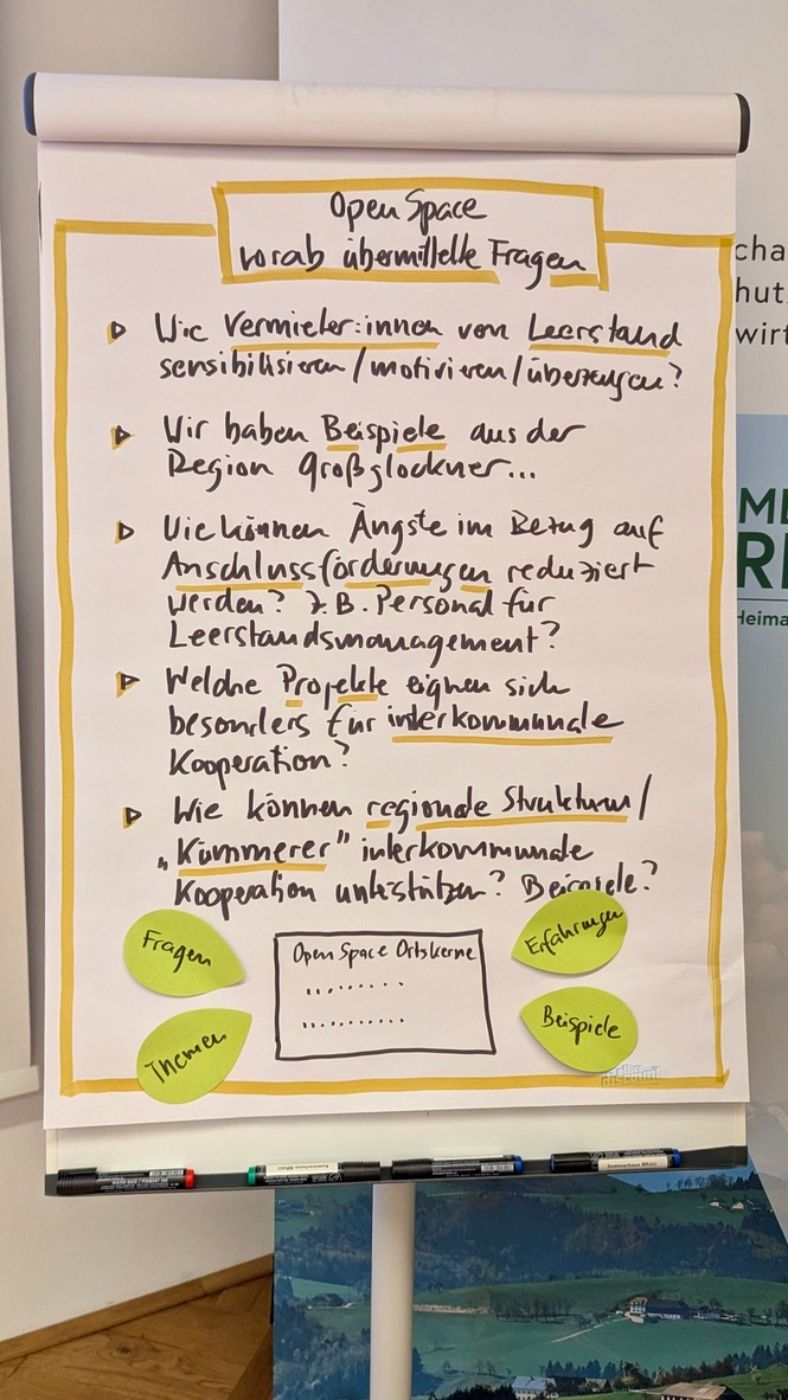 Open Space
vorab übermittelte Fragen
Wie Vermieter:innen von Leerstand
sensibilisieren/motivieren/überzeugen?
Wir haben Beispiele aus der
Region Großglockner...
Wie können Ängste im Bezug auf
Anschlussförderungen reduziert
werden? z.B. Personal für
Leerstandsmanagement?
Welche Projekte eignen sich
besonders für interkommunale
Kooperation?
Wie können regionale Strukturen/
„Kümmerer" interkommunale
Kooperation unterstützen? Beispiele?
Fragen
Themen
Open Space Ortskerne
Erfahrungen
Beispiele
office discount
Seminarhaus BRAU
Seminarhaus BRAU
cha
hut
wirt
ME
RE
Heima